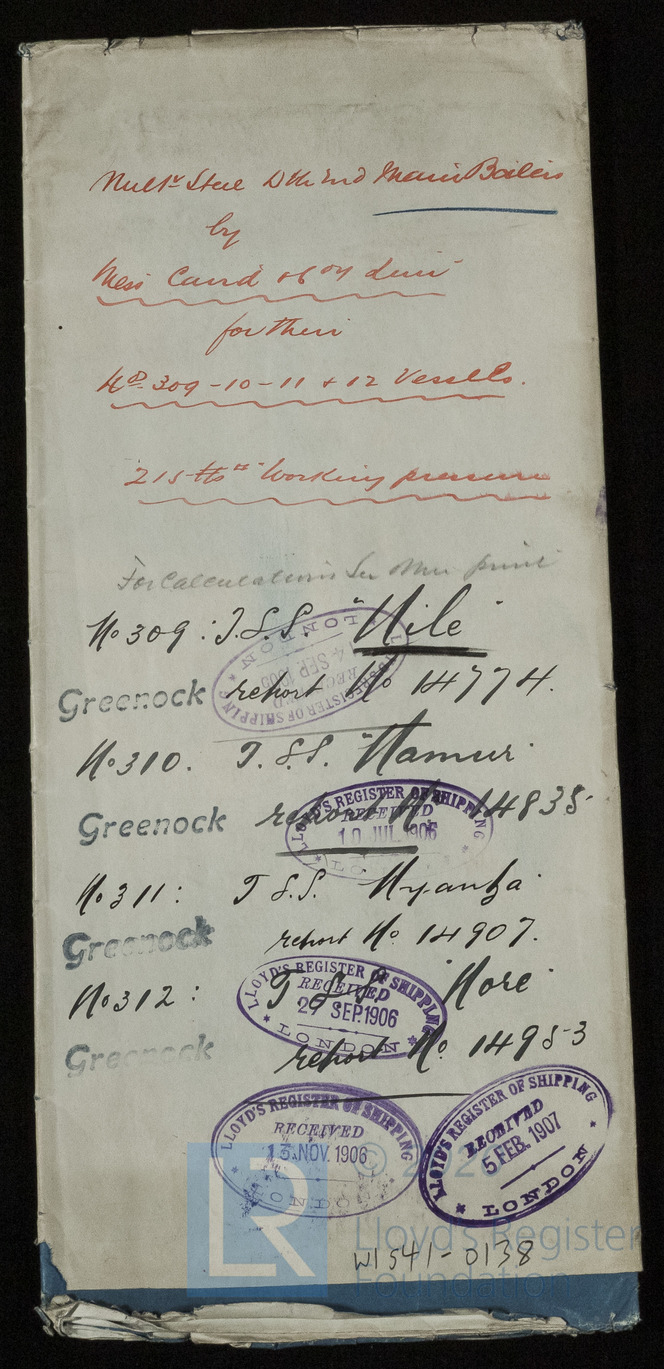 Mult^r Steel Dble End Main Boilers
by
Mess^rs Caird & Co^y
for their
N^os. 309-10-11 + 12 Vessels.
215 lbs □" Working pressure
For Calculations See other print
No 309: T.S.S. "Nile"
Greenock report No 14774.
No 310. T.S.S. "Namur"
Greenock report No 14835
No 311: T S.S. Nyanza
Greenock report No. 14907.
No 312: T S.S. "Nore"
Greenock report No. 14953
LLOYD'S REGISTER OF SHIPPING
RECEIVED
4 SEP. 1905
LONDON
LLOYD'S REGISTER OF SHIPPING
RECEIVED
10 JUL. 1906
LO
LLOYD'S REGISTER OF SHIPPING
RECEIVED
SEP. 1906
LONDON
LLOYD'S REGISTER OF SHIPPING
RECEIVED
13 NOV. 1906
ONDO
LLOYD'S REGISTER OF SHIPPING
RECEIVED
5 FEB. 1907
LONDON
W1541-0138
LR
Lloyd's Register
Foundation